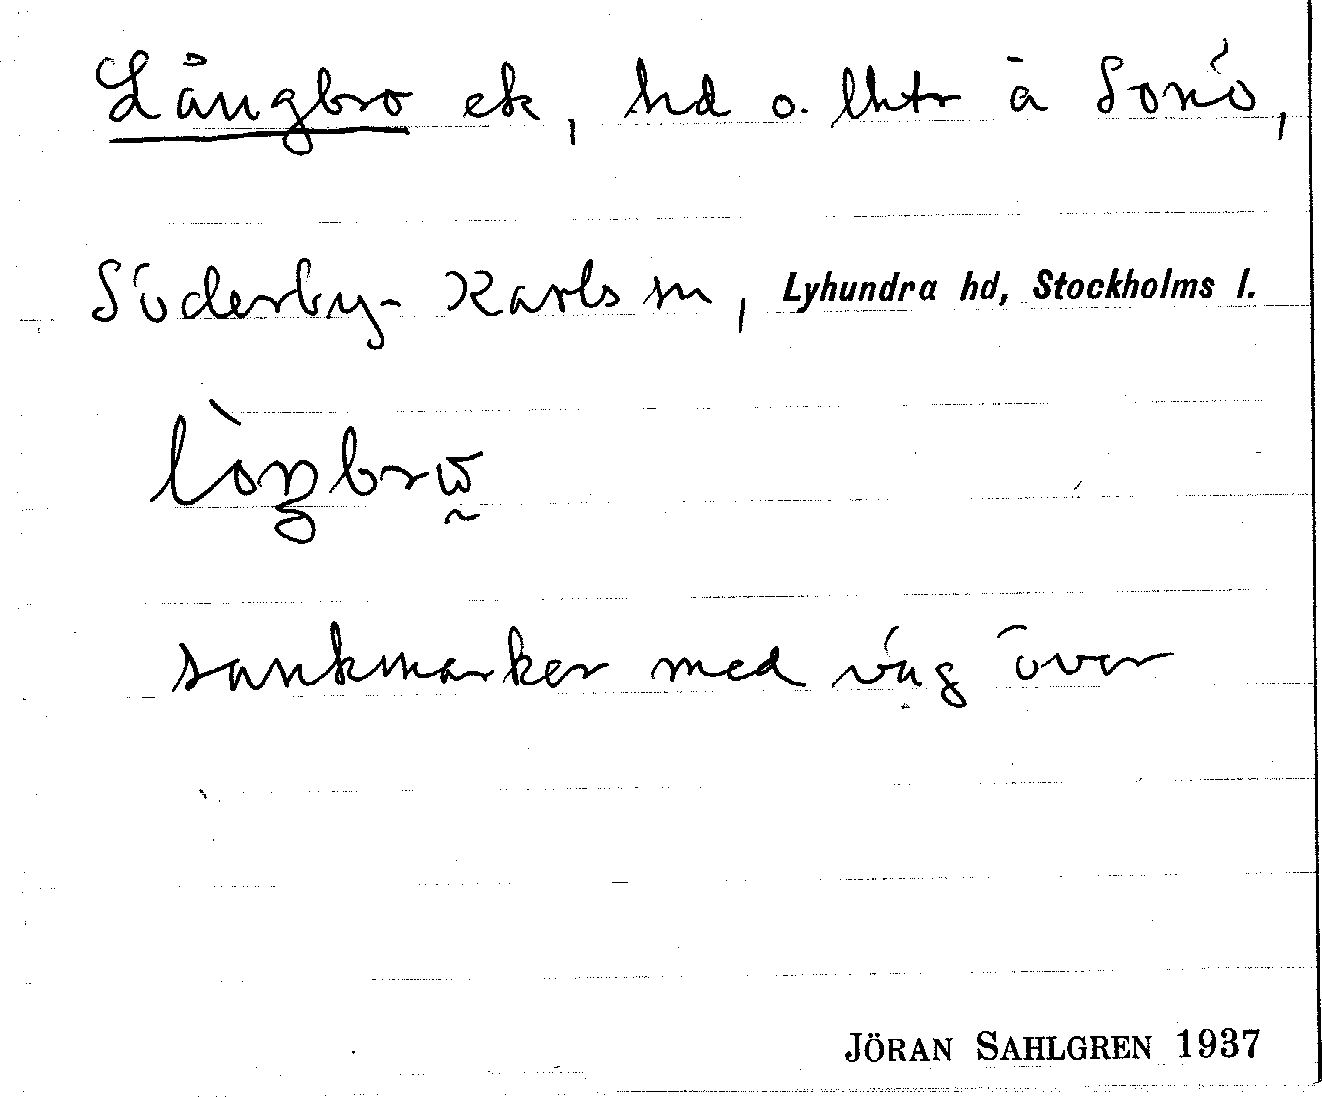 Långbro ek, hd o. lht å Sonö,
Söderby-Karls sn, Lyhundra hd, Stockholms l.
sankmarker med väg över
JÖRAN SAHLGREN 1937